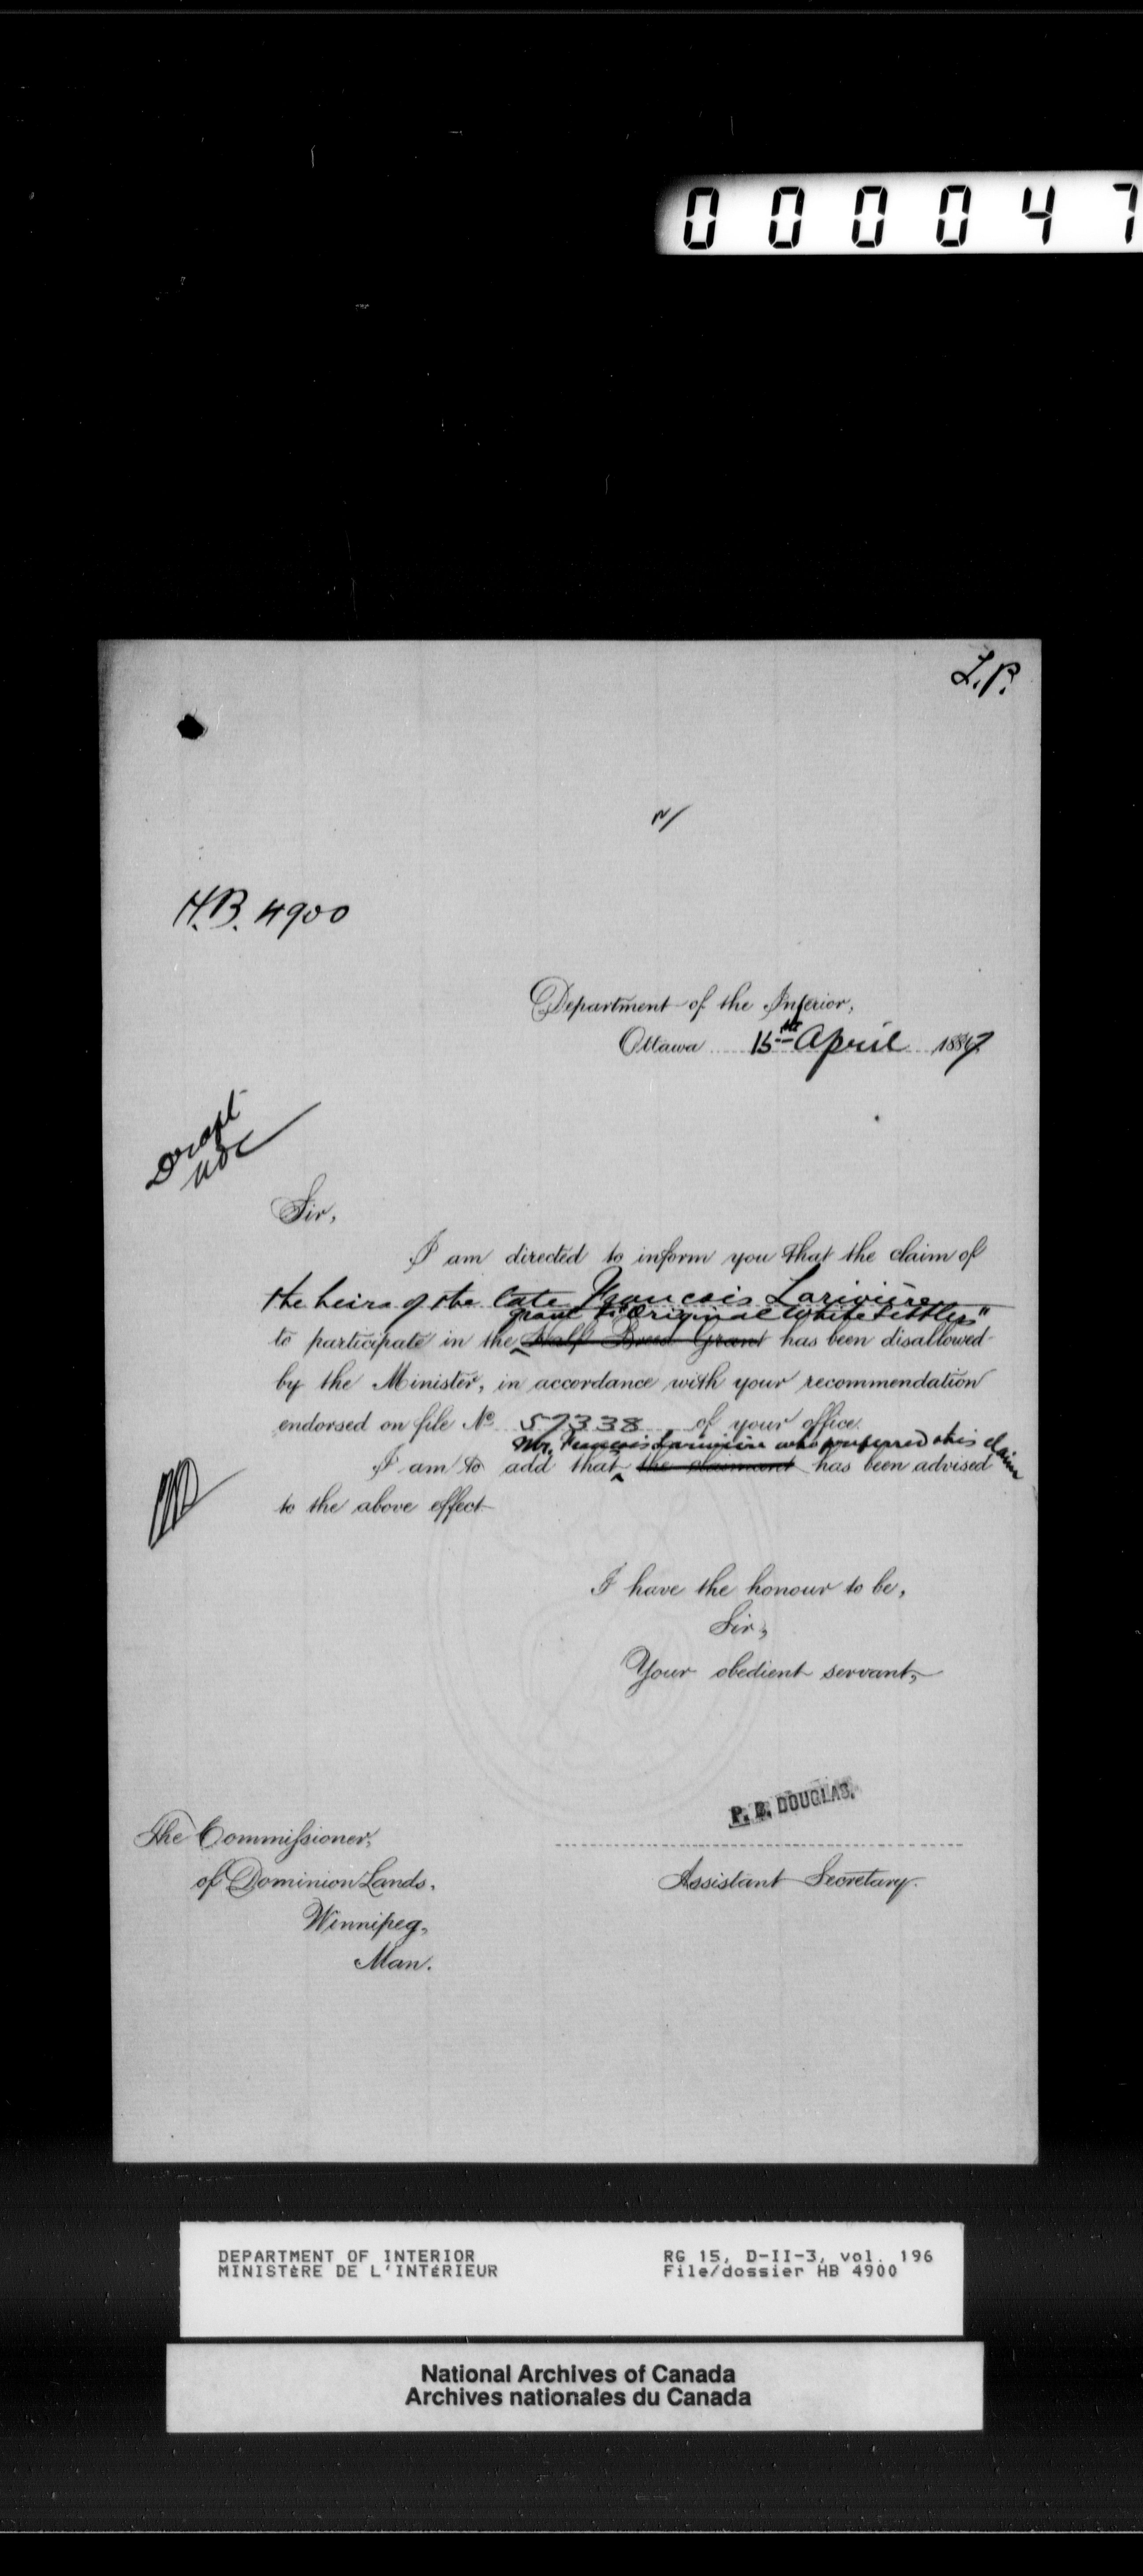 000047
L.P.
H.B. 4900
Department of the Interior,
Ottawa 15th April 1887
Draft
Sir,
I am directed to inform you that the claim of
the heirs of the late Francois Lariviere
grant to "Original White Settlers"
to participate in the Half Breed Grant has been disallowed
by the Minister, in accordance with your recommendation
endorsed on file No. 57338 of your office.
Mr. Francois Lariviere who preferred this claim
I am to add that the claimant has been advised
to the above effect
I have the honour to be,
Sir,
Your obedient servant,
P. B. DOUGLAS.
The Commissioner,
of Dominion Lands.
Winnipeg,
Man.
Assistant Secretary.
DEPARTMENT OF INTERIOR
MINISTÈRE DE L'INTÉRIEUR
RG 15, D-II-3, vol. 196
File/dossier HB 4900
National Archives of Canada
Archives nationales du Canada